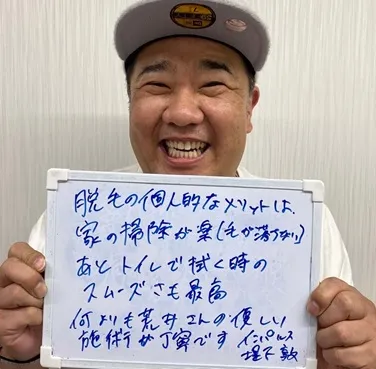 脱毛の個人的なメリットは、
家の掃除が楽(毛が落ちない)
あと トイレで拭く時の
スムーズさも最高
何よりも荒井さんの優しい
施術が丁寧です
インパルス
堤下敦